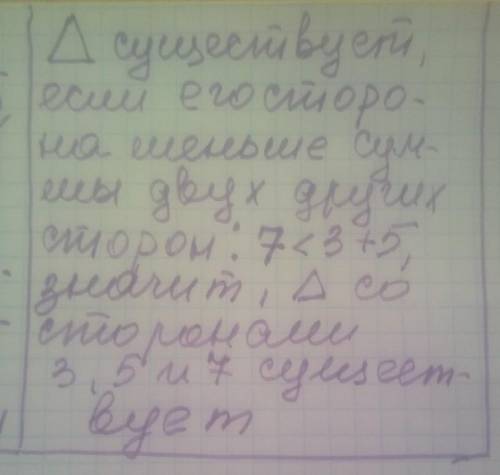 Δ существует,
если его сторо-
на меньше сум-
мы двух других
сторон: 7<3+5,
значит, Δ со
сторонами
3, 5 и 7 сущест-
вует